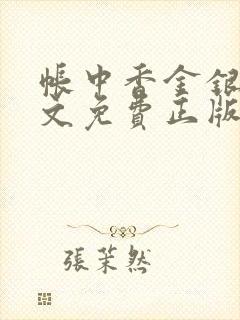 帳中香金銀
文免費正版
張茉然